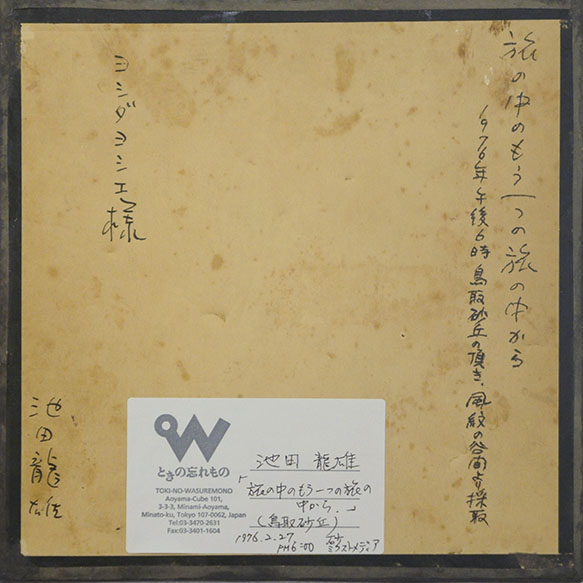 旅の中のもう一つの旅の中から
1976年午後6時 鳥取砂丘の頂き、風紋の谷間より採取
ヨシダヨシエ様
池田龍雄
ときの忘れもの
TOKI-NO-WASUREMONO
Aoyama-Cube 101,
3-3-3, Minami-Aoyama,
Minato-ku, Tokyo 107-0062, Japan
Tel:03-3470-2631
Fax:03-3401-1604
池田 龍雄
「旅の中のもう一つの旅の
中から。」
(鳥取砂丘)
1976.2.27 砂
PM6:00 ミクストメディア